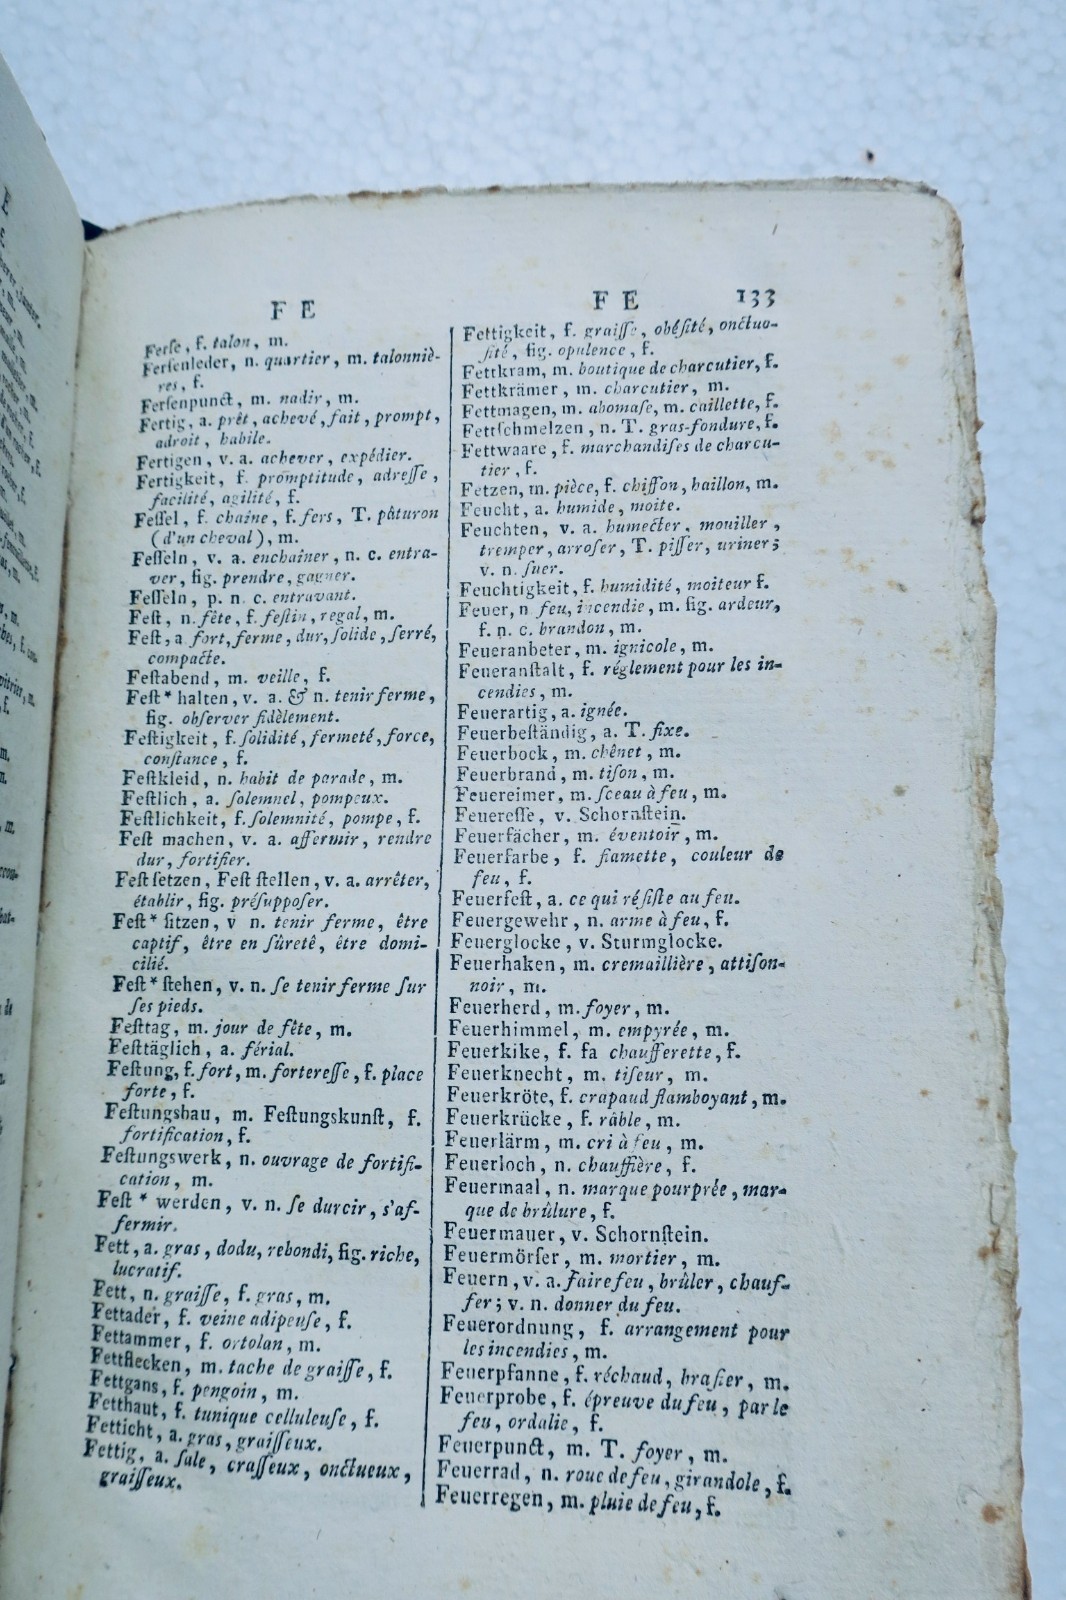 F E
Ferſe, f. talon, m.
Ferſenleder, n. quartier, m. talonniè-
res, f.
Ferſenpunct, m. nadir, m.
Fertig, a. prêt, achevé, fait, prompt,
adroit, habile.
Fertigen, v. a. achever, expédier.
Fertigkeit, f. promptitude, adreſſe,
facilité, agilité, f.
Feſſel, f. chaîne, f. fers, T. pâturon
(d'un cheval), m.
Feſſeln, v. a. enchaîner, n. c. entra-
ver, fig. prendre, gagner.
Feſſeln, p. n. c. entravant.
Feſt, n. fête, f. feſtin, regal, m.
Feſt, a fort, ferme, dur, ſolide, ſerré,
compacte.
Feſtabend, m. veille, f.
Feſt* halten, v. a. & n. tenir ferme,
fig. obſerver fidèlement.
Feſtigkeit, f. ſolidité, fermeté, force,
conſtance, f.
Feſtkleid, n. habit de parade, m.
Feſtlich, a. ſolemnel, pompeux.
Feſtlichkeit, f. ſolemnité, pompe, f.
Feſt machen, v. a. affermir, rendre
dur, fortifier.
Feſt ſetzen, Feſt ſtellen, v. a. arrêter,
établir, fig. préſuppoſer.
Feſt* ſitzen, v n. tenir ferme, être
captif, être en ſûreté, être domi-
cilié.
Feſt* ſtehen, v. n. ſe tenir ferme ſur
ſes pieds.
Feſttag, m. jour de fête, m.
Feſttäglich, a. férial.
Feſtung, f. fort, m. fortereſſe, f. place
forte, f.
Feſtungsbau, m. Feſtungskunſt, f.
fortification, f.
Feſtungswerk, n. ouvrage de fortifi-
cation, m.
Feſt* werden, v. n. ſe durcir, s'af-
fermir.
Fett, a. gras, dodu, rebondi, fig. riche,
lucratif.
Fett, n. graiſſe, f. gras, m.
Fettader, f. veine adipeuſe, f.
Fettammer, f. ortolan, m.
Fettflecken, m. tache de graiſſe, f.
Fettgans, f. pengoin, m.
Fetthaut, f. tunique celluleuſe, f.
Fetticht, a. gras, graiſſeux.
Fettig, a. ſale, craſſeux, onctueux,
graiſſeux.
F E 133
Fettigkeit, f. graiſſe, obéſité, onctuo-
ſité, fig. opulence, f.
Fettkram, m. boutique de charcutier, f.
Fettkrämer, m. charcutier, m.
Fettmagen, m. abomaſe, m. caillette, f.
Fettſchmelzen, n. T. gras-fondure, f.
Fettwaare, f. marchandiſes de charcu-
tier, f.
Fetzen, m. pièce, f. chiffon, haillon, m.
Feucht, a. humide, moite.
Feuchten, v. a. humecter, mouiller,
tremper, arroſer, T. piſſer, uriner;
v. n. ſuer.
Feuchtigkeit, f. humidité, moiteur f.
Feuer, n feu, incendie, m. fig. ardeur,
f. n. c. brandon, m.
Feueranbeter, m. ignicole, m.
Feueranſtalt, f. réglement pour les in-
cendies, m.
Feuerartig, a. ignée.
Feuerbeſtändig, a. T. fixe.
Feuerbock, m. chênet, m.
Feuerbrand, m. tiſon, m.
Feuereimer, m. ſceau à feu, m.
Feuereſſe, v. Schornſtein.
Feuerfächer, m. éventoir, m.
Feuerfarbe, f. flamette, couleur de
feu, f.
Feuerfeſt, a. ce qui réſiſte au feu.
Feuergewehr, n. arme à feu, f.
Feuerglocke, v. Sturmglocke.
Feuerhaken, m. cremaillière, attiſon-
noir, m.
Feuerherd, m. foyer, m.
Feuerhimmel, m. empyrée, m.
Feuerkike, f. fa chaufferette, f.
Feuerknecht, m. tiſeur, m.
Feuerkröte, f. crapaud flamboyant, m.
Feuerkrücke, f. râble, m.
Feuerlärm, m. cri à feu, m.
Feuerloch, n. chauffière, f.
Feuermaal, n. marque pourprée, mar-
que de brûlure, f.
Feuermauer, v. Schornſtein.
Feuermörſer, m. mortier, m.
Feuern, v. a. faire feu, brûler, chauf-
fer; v. n. donner du feu.
Feuerordnung, f. arrangement pour
les incendies, m.
Feuerpfanne, f. réchaud, braſier, m.
Feuerprobe, f. épreuve du feu, par le
feu, ordalie, f.
Feuerpunct, m. T. foyer, m.
Feuerrad, n. roue de feu, girandole, f.
Feuerregen, m. pluie de feu, f.